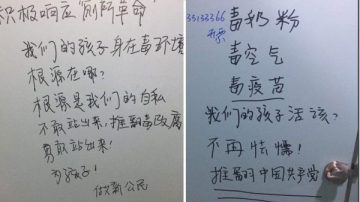 积极响应"厕所革命"
我们的孩子身在毒环境
根源在哪?
根源是我们的自私
不敢站出来,推翻毒政府
勇敢站出来!
为孩子!
做新公民
33133366
毒奶粉
毒空气
毒疫苗
我们的孩子活该?
不再怯懦!
推翻中国共产党